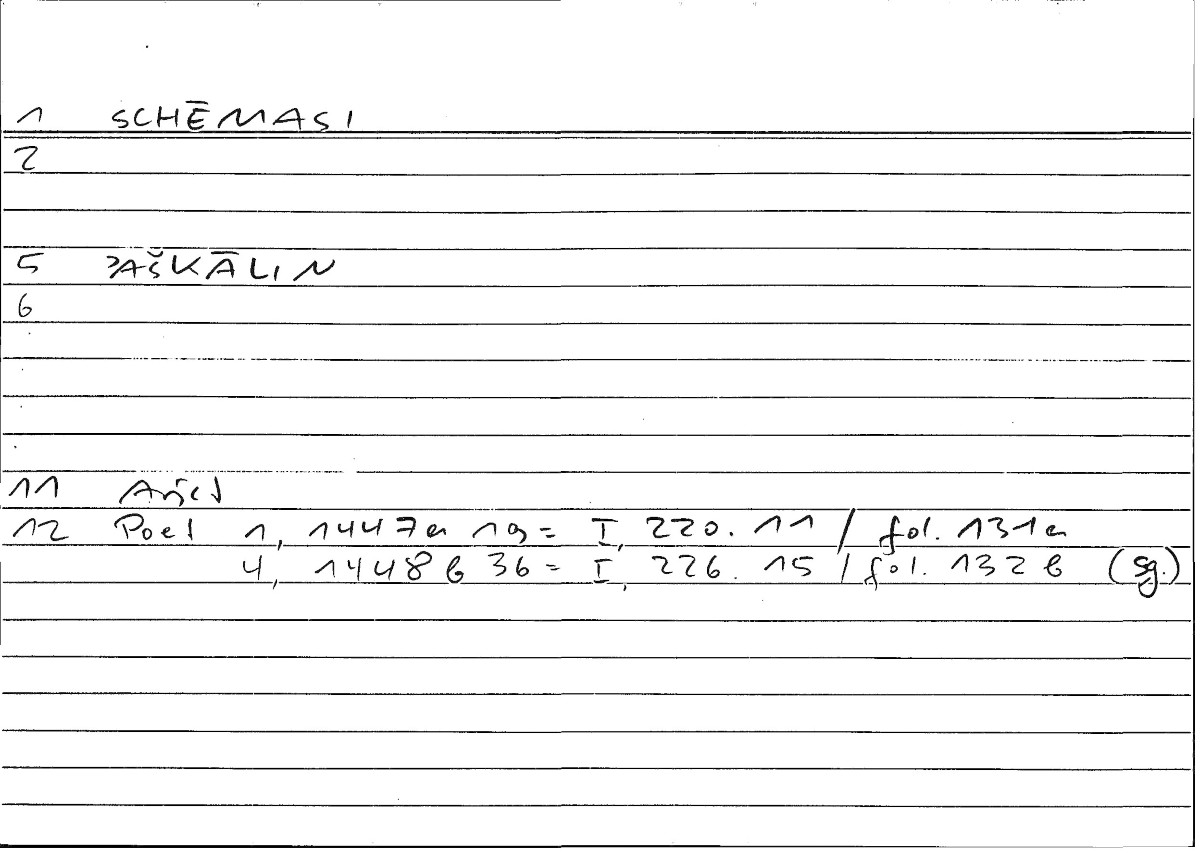 1 SCHĒMASI
2
5 ʾAŠKĀLIN
6
11 Arist
12 Poet 1, 1447a 19 = I, 220. 11 / fol. 131a
4, 1448b 36 = I, 226. 15 / fol. 132b (sg.)